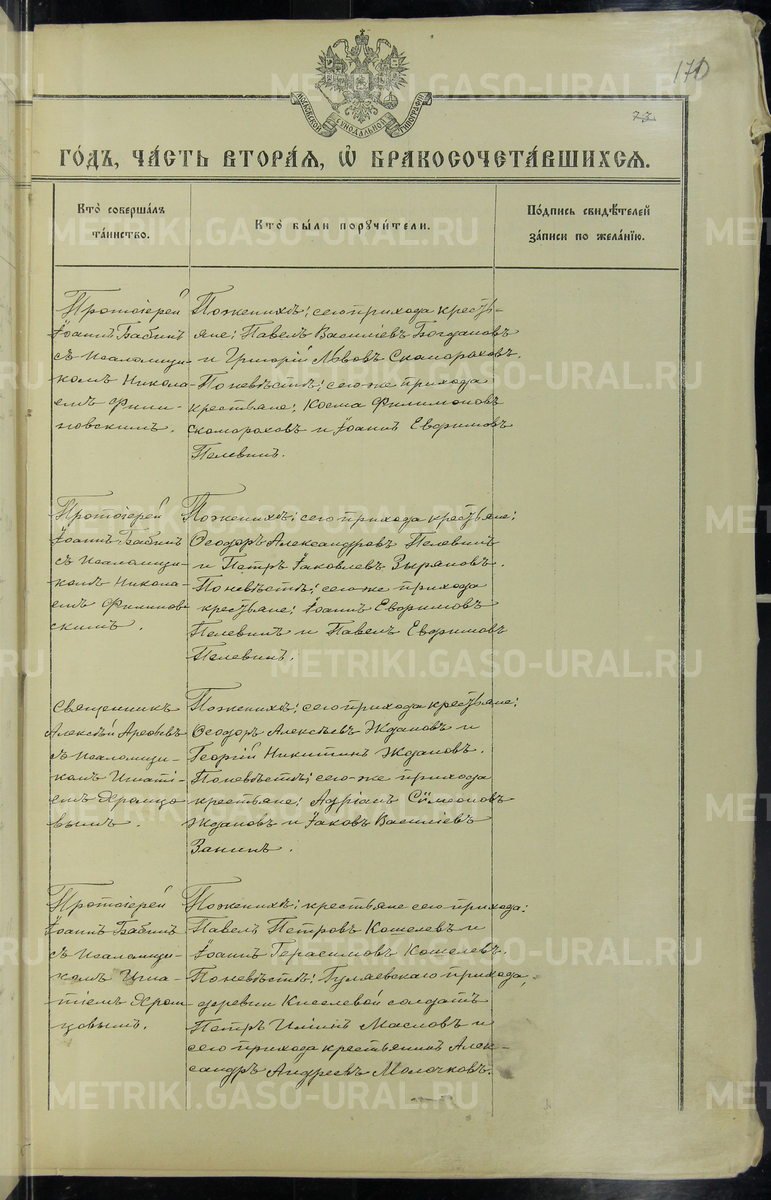 170
73
МОСКОВСКОЙ СѴНОДАЛЬНОЙ ТИПОГРАФІИ
ГО́ДЪ, ЧА́СТЬ ВТОРА́Я, Ѽ БРАКОСОЧЕТА́ВШИХСЯ.
Кто̀ соверша́лъ
та́инство.
Кто̀ бы́ли поручи́тели.
По́дпись свидѣ́телей
за́писи по жела́нію.
Протоіерей
Іоаннъ Бабинъ
съ псаломщи-
комъ Никола-
емъ Фили-
повскимъ.
По женихѣ: сего прихода кресть-
яне: Павелъ Василіевъ Богдановъ
и Григорій Львовъ Скомороховъ.
По невѣстѣ: сего-же прихода
крестьяне: Косма Филимоновъ
Скомороховъ и Іоаннъ Евѳимовъ
Пелевинъ.
Протоіерей
Іоаннъ Бабинъ
съ псаломщи-
комъ Никола-
емъ Филипов-
скимъ.
По женихѣ: сего прихода крестьяне:
Ѳеодоръ Александровъ Пелевинъ
и Петръ Іаковлевъ Зыряновъ.
По невѣстѣ: сего-же прихода
крестьяне: Іоаннъ Евѳимовъ
Пелевинъ и Павелъ Евѳимовъ
Пелевинъ.
Священникъ
Алексѣй Арефьевъ
съ псаломщи-
комъ Игнаті-
емъ Хромцо-
вымъ.
По женихѣ: сего прихода крестьяне:
Ѳеодоръ Алексѣевъ Ждановъ и
Георгій Никитинъ Ждановъ.
По невѣстѣ: сего-же прихода
крестьяне: Адріанъ Сѵмеоновъ
Ждановъ и Іаковъ Василіевъ
Занинъ.
Протоіерей
Іоаннъ Бабинъ
съ псаломщи-
комъ Игна-
тіемъ Хром-
цовымъ.
По женихѣ: крестьяне сего прихода:
Павелъ Петровъ Кошелевъ и
Іоаннъ Герасимовъ Кошелевъ.
По невѣстѣ: Гуляевскаго прихода,
деревни Киселевой солдатъ
Петръ Иліинъ Масловъ и
сего прихода крестьянинъ Алек-
сандръ Андреевъ Молочковъ.
METRIKI.GASO-URAL.RU